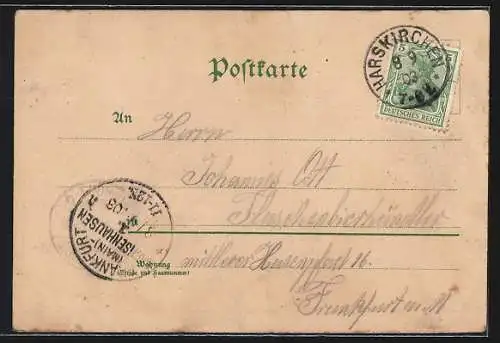 Postkarte
HARSKIRCHEN
8 9
03
7-8 V.
DEUTSCHES REICH
An Herrn
Johannes Ott
Flaschenbierhändler
in
mittlerer Hasenpfad 16.
Wohnung
(Straße und Hausnummer)
Frankfurt a. M
FRANKFURT
(MAIN)-
SACHSENHAUSEN
11-12N.
03